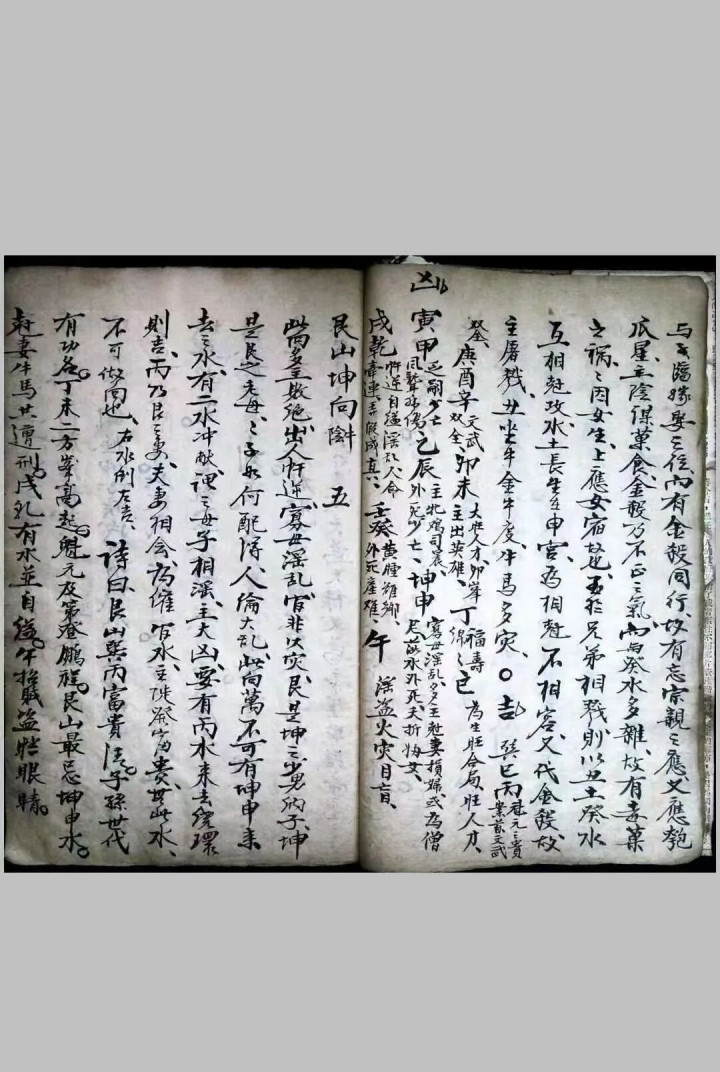 与亥臨嫁娶之位内有金殺同行故有忘宗親之應又應匏
瓜星主陰謀菓食金殺乃不正之氣而与癸水多雜故有毒菓
之禍之因女生上應女宿故也至於兄弟相戮則以丑土癸水
互相尅攻水土長生在申宫為相尅不相容又代金殺故
主屠戮丑坐牛金牛度牛馬多灾○吉巽巳丙魁元之貴業蓄文武
双全庚酉辛文武双全卯未大旺人才卯峯主出英雄丁福壽綿之巳為生旺合局旺人才
凶寅甲乏嗣少亡風聲殘傷乙辰主牝鸡司晨外死少亡坤申寡母淫乱多主尅妻損婦或為僧尼此水外死夭折悔女
戌乾忤逆自縊淫乱人命牽連弄假成真壬癸黄腫離鄉外死産难午淫盗火灾目盲
艮山坤向 五
此向多主敗絶出人忤逆寡母淫乱官非火灾艮是坤之少男的子坤
是艮之老母之子如何配得人倫大乱此向萬不可有坤申来
去之水有二水冲射謂之母子相淫主大凶要有丙水来去绕環
則吉丙乃艮之妻夫妻相會為催官水主陡發富貴無此水
不可做向也右水倒左吉詩曰艮山巽丙富貴清子孫世代
有功名丁未二方峯高起魁元及第登鵬程艮山最忌坤申水
尅妻牛馬共遭刑戌乳有水並自縊午招賊盗瞎眼睛